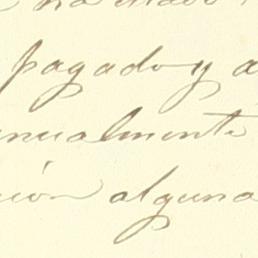 pagado y a
nualmente
ción alguna